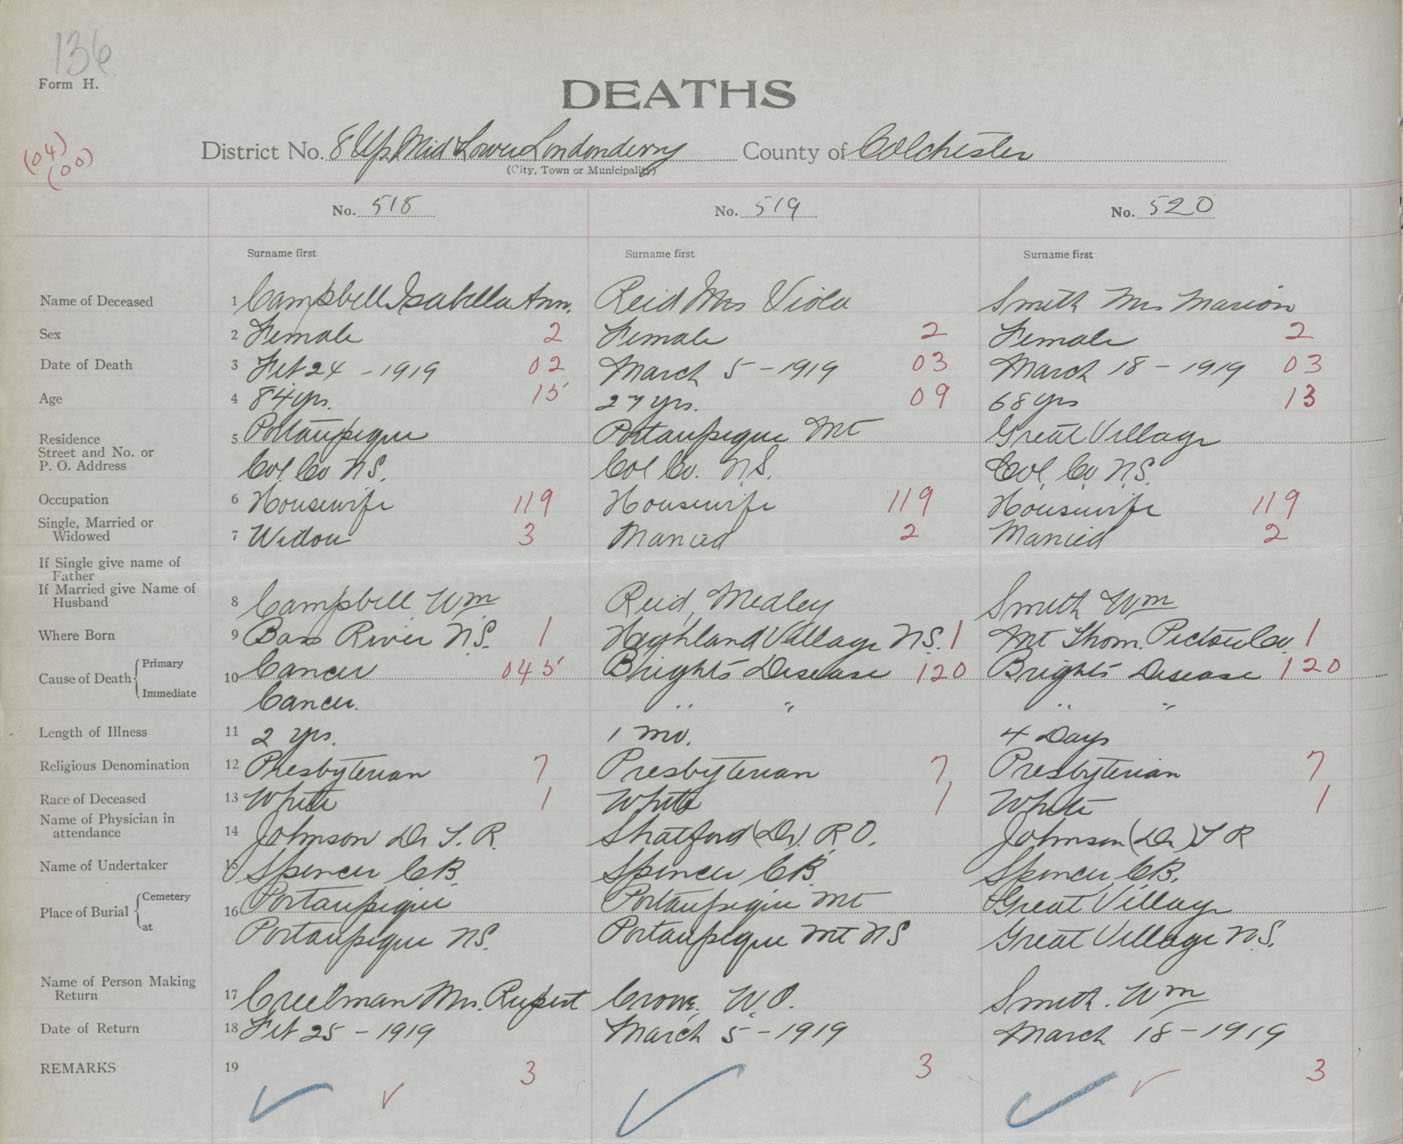 136
Form H.
DEATHS
(04)
(00)
District No. 8 Up Mid & Lower Londonderry County of Colchester
(City, Town or Municipality)
No. 518 No. 519 No. 520
Surname first Surname first Surname first
Name of Deceased 1 Campbell Isabella Ann. Reid Mrs Viola Smith Mrs Marion
Sex 2 Female 2 Female 2 Female 2
Date of Death 3 Feb 24 - 1919 02 March 5 - 1919 03 March 18 - 1919 03
Age 4 84 yrs. 15 27 yrs. 09 68 yrs 13
Residence 5 Portaupique Portaupique Mt Great Village
Street and No. or
P. O. Address Col. Co N.S. Col Co. N.S. Col. Co N.S.
Occupation 6 Housewife 119 Housewife 119 Housewife 119
Single, Married or
Widowed 7 Widow 3 Married 2 Married 2
If Single give name of
Father
If Married give Name of
Husband 8 Campbell Wm Reid, Medley Smith Wm
Where Born 9 Bass River N.S. 1 Highland Village N.S. 1 Mt Thom. Pictou Co. 1
Cause of Death Primary 10 Cancer 045 Brights Disease 120 Brights Disease 120
Immediate Cancer. " " " "
Length of Illness 11 2 yrs. 1 mo. 4 Days
Religious Denomination 12 Presbyterian 7 Presbyterian 7 Presbyterian 7
Race of Deceased 13 White 1 White 1 White 1
Name of Physician in
attendance 14 Johnson Dr T. R. Shatford (Dr). R O. Johnson (Dr) T R
Name of Undertaker 15 Spencer C B. Spencer C B. Spencer C B.
Place of Burial Cemetery 16 Portaupique Portaupique Mt Great Village
at Portaupique N.S. Portaupique Mt N S Great Village N.S.
Name of Person Making
Return 17 Creelman Mrs. Rupert Crowe, W. O. Smith. Wm
Date of Return 18 Feb 25 - 1919 March 5 - 1919 March 18 - 1919
REMARKS 19 3 3 3